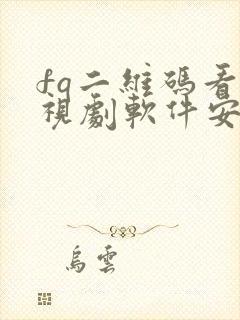 fq二維碼看
視劇軟件安
烏雲